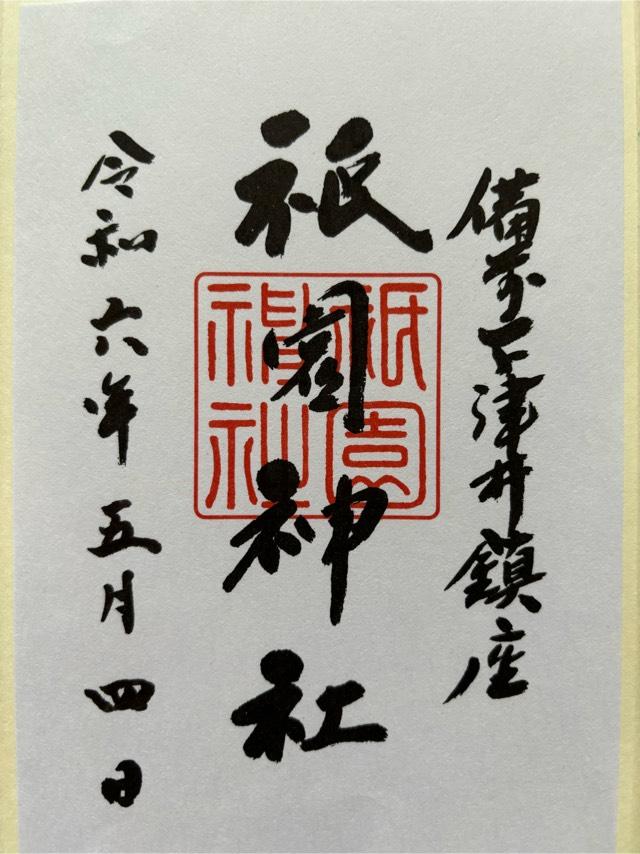 備前下津井鎮座
祇園神社
祇園神社
令和六年五月四日